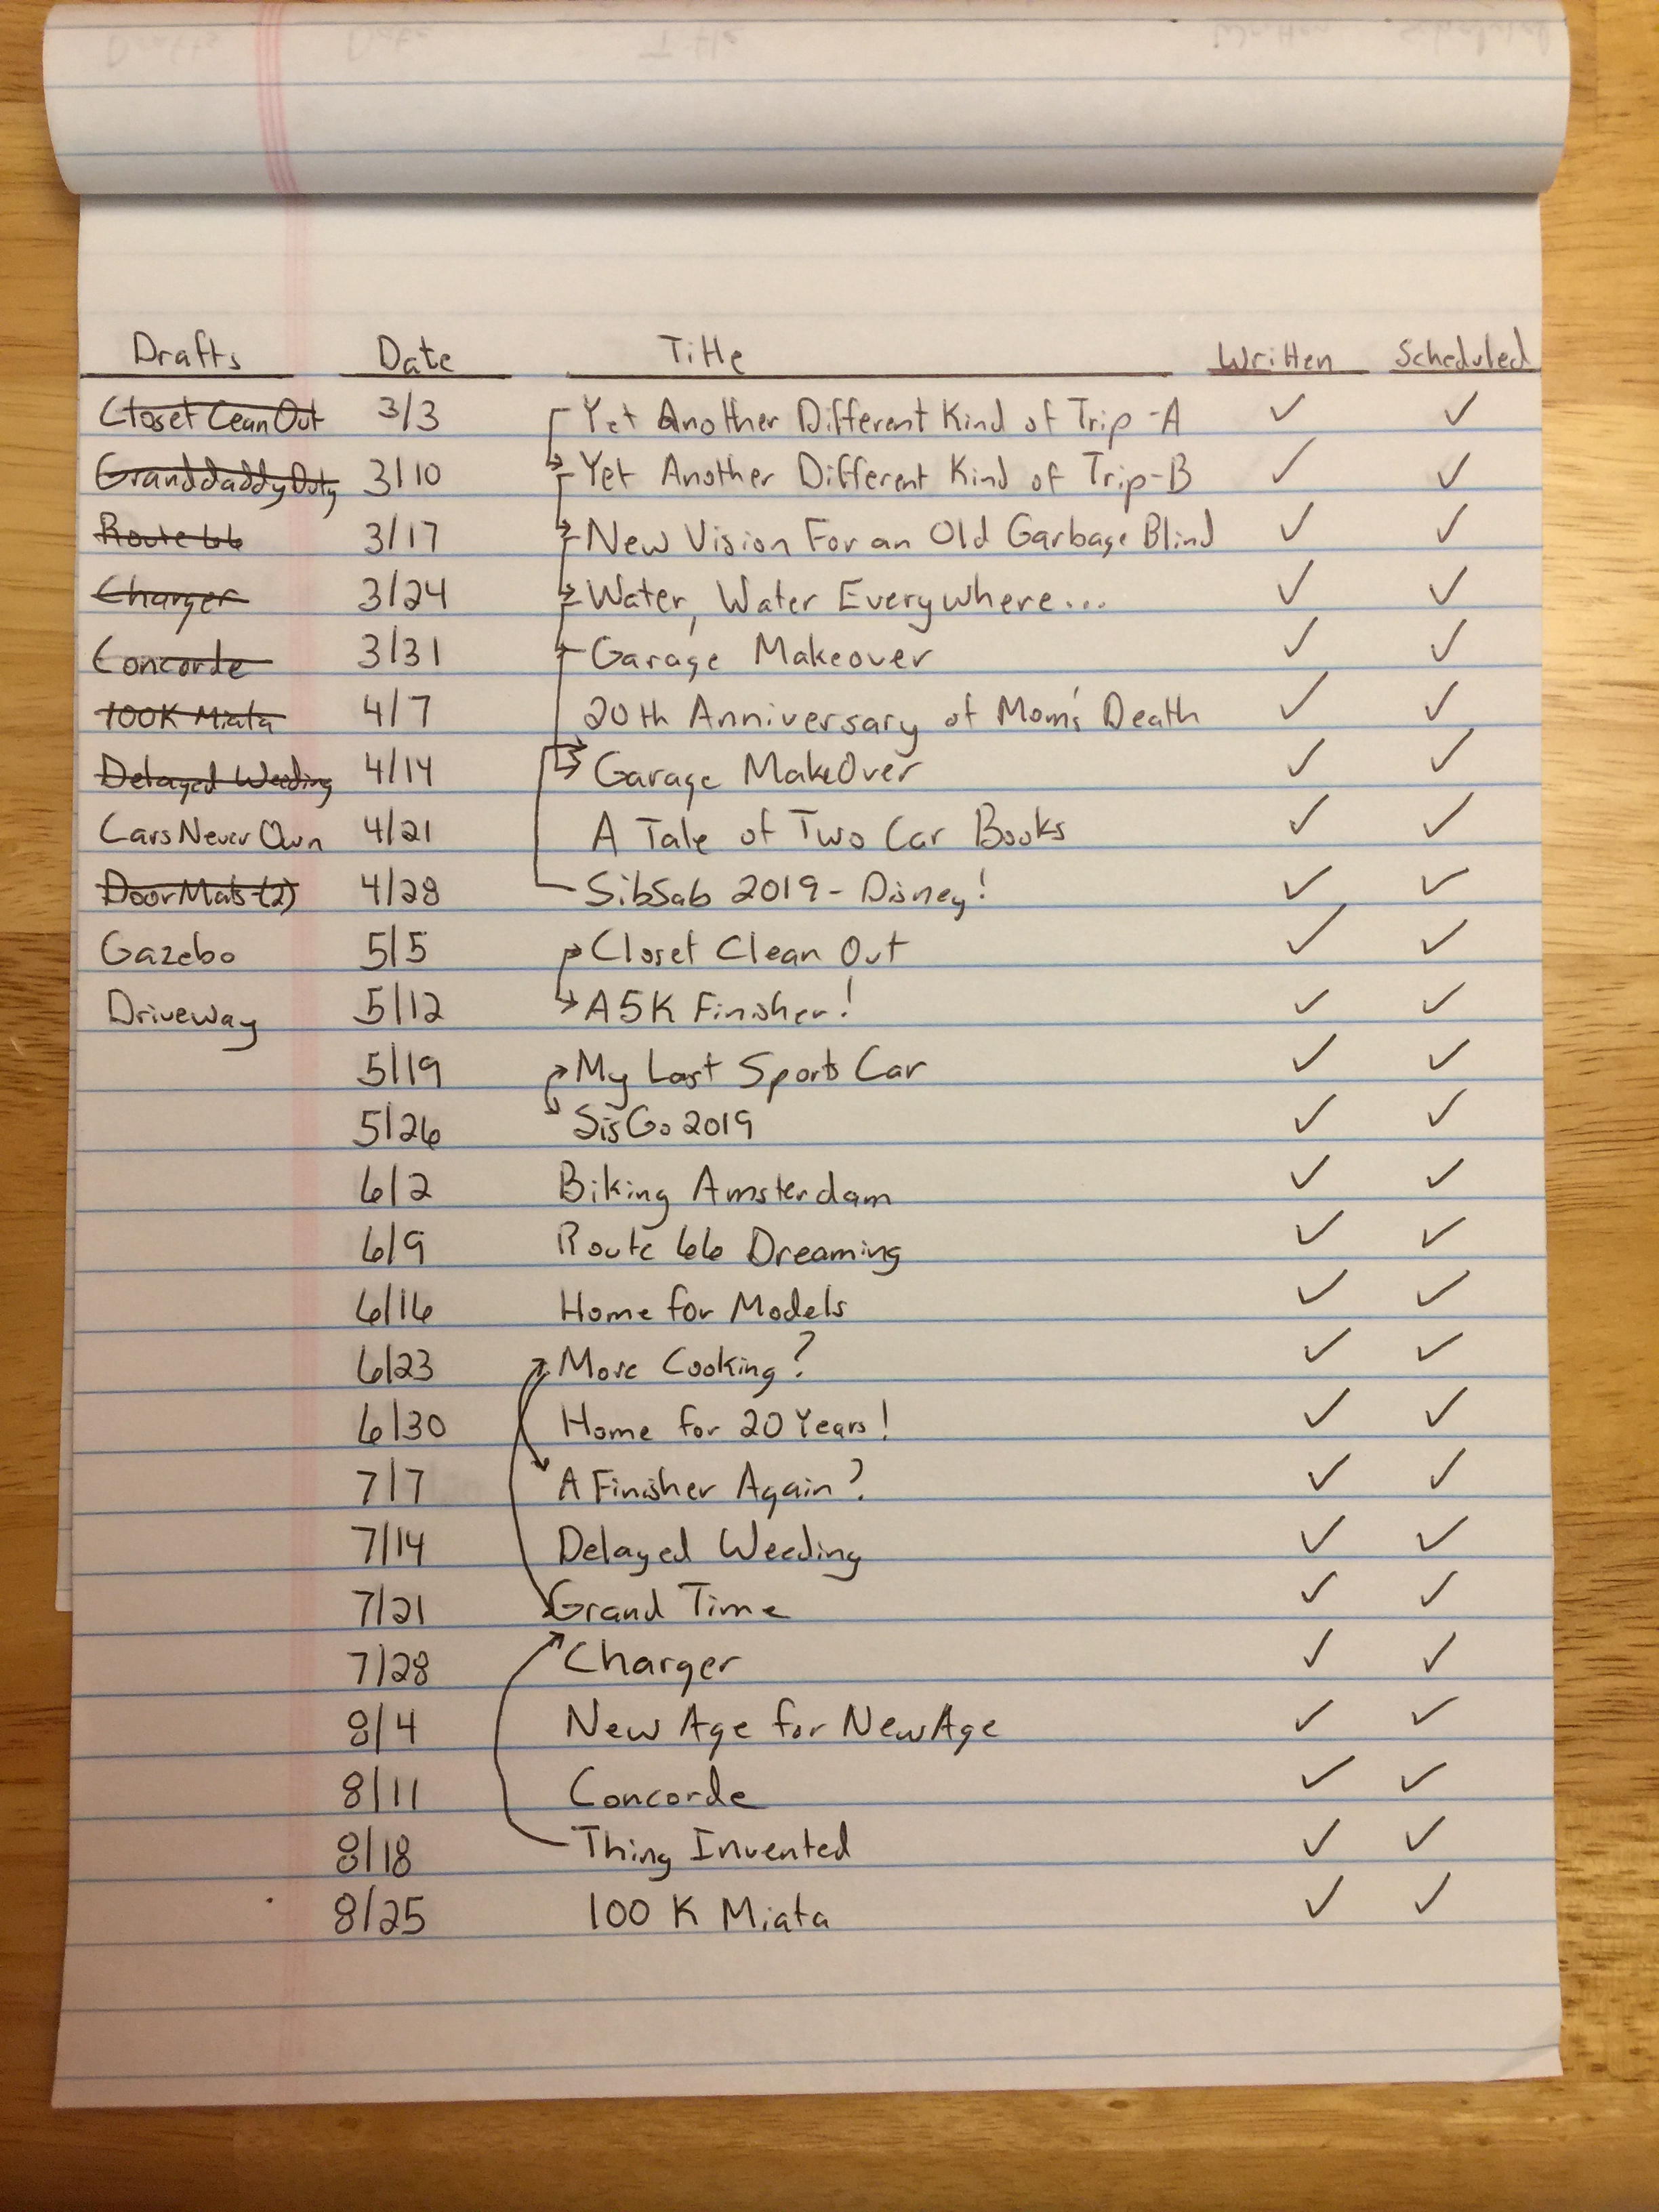 Drafts Date Title Written Scheduled
Closet Cean Out 3/3 Yet Another Different Kind of Trip-A ✓ ✓
Granddaddy Duty 3/10 Yet Another Different Kind of Trip-B ✓ ✓
Route 66 3/17 New Vision For an Old Garbage Blind ✓ ✓
Charger 3/24 Water, Water Everywhere... ✓ ✓
Concorde 3/31 Garage Makeover ✓ ✓
100K Miata 4/7 20th Anniversary of Mom's Death ✓ ✓
Delayed Weeding 4/14 Garage MakeOver ✓ ✓
Cars Never Own 4/21 A Tale of Two Car Books ✓ ✓
Door Mats (2) 4/28 SibSab 2019 - Disney! ✓ ✓
Gazebo 5/5 Closet Clean Out ✓ ✓
Driveway 5/12 A 5K Finisher! ✓ ✓
5/19 My Last Sports Car ✓ ✓
5/26 SisGo 2019 ✓ ✓
6/2 Biking Amsterdam ✓ ✓
6/9 Route 66 Dreaming ✓ ✓
6/16 Home for Models ✓ ✓
6/23 More Cooking? ✓ ✓
6/30 Home for 20 Years! ✓ ✓
7/7 A Finisher Again? ✓ ✓
7/14 Delayed Weeding ✓ ✓
7/21 Grand Time ✓ ✓
7/28 Charger ✓ ✓
8/4 New Age for New Age ✓ ✓
8/11 Concorde ✓ ✓
8/18 Thing Invented ✓ ✓
8/25 100 K Miata ✓ ✓